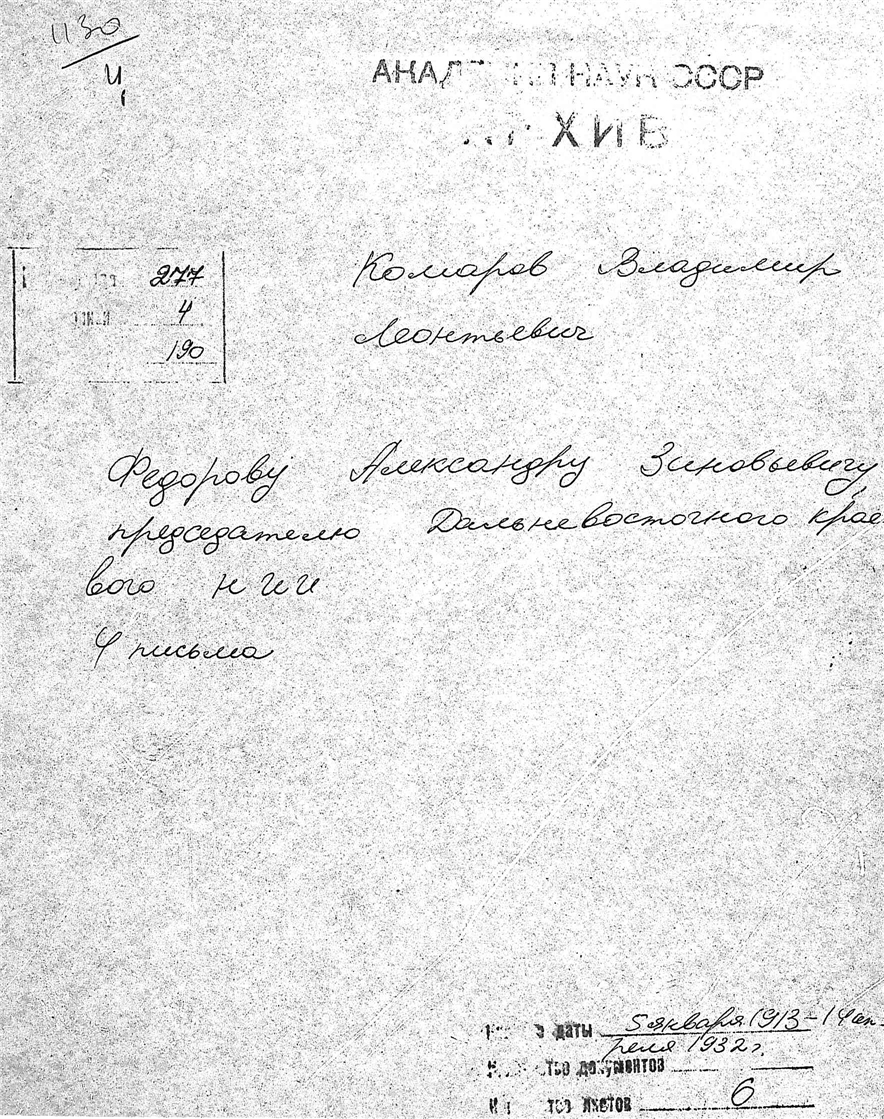 1130
АКАДЕМИЯ НАУК СССР
АРХИВ
277
4
190
Комаров Владимир
Леонтьевич
Федорову Александру Зиновьевичу,
председателю Дальневосточного крае-
вого НИИ
4 письма
даты 5 января 1913 – 14 ап-
реля 1932 г.
документов
листов 6